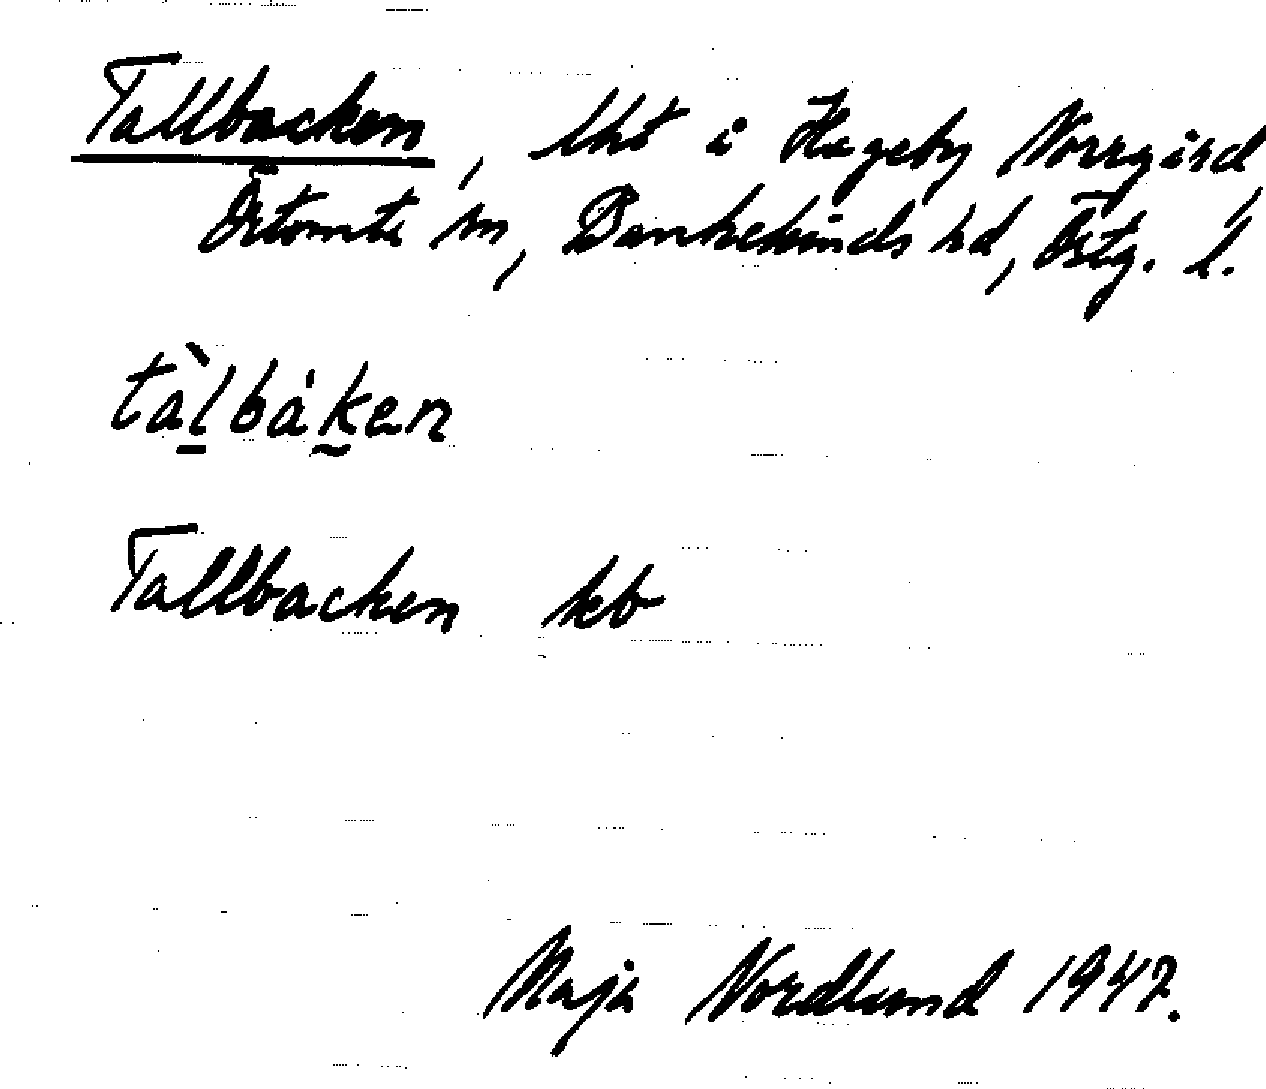 Tallbacken, lht i Hageby Norrgård,
Örtomta sn, Bankekinds hd, Östg. l.
tàlbáken
Tallbacken kb
Maja Nordlund 1947.